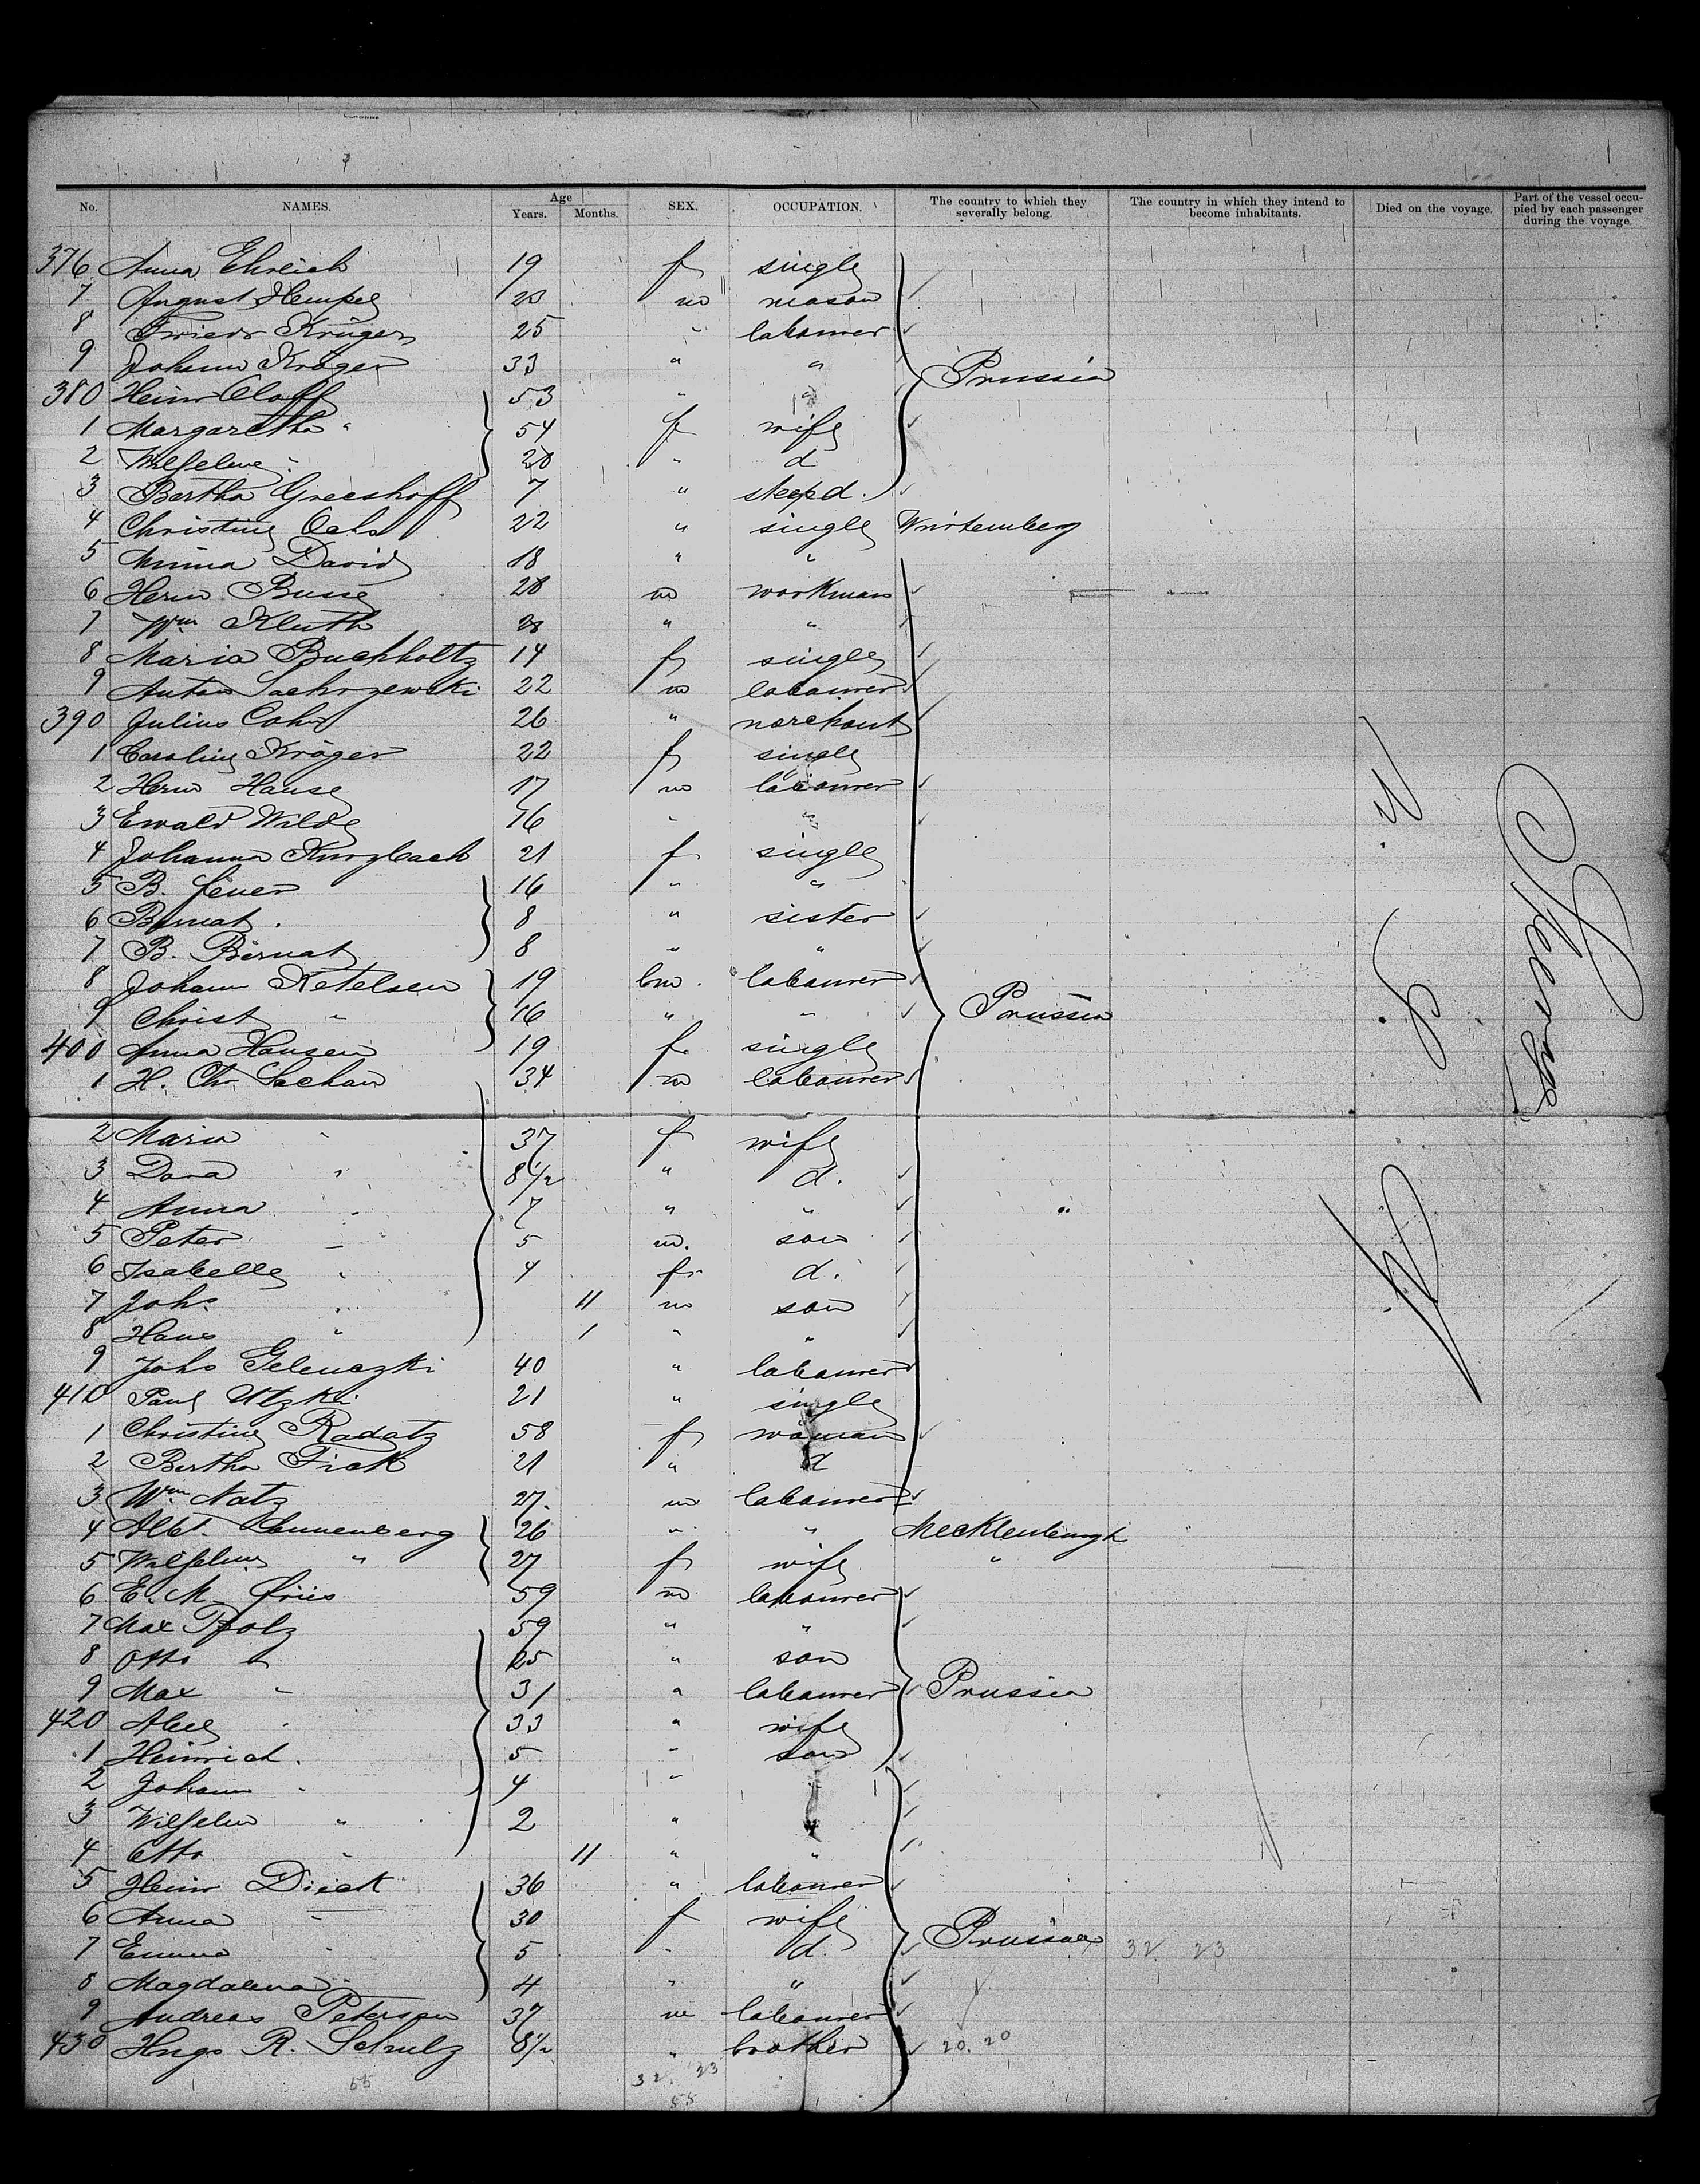 No. NAMES. Age Years. Months. SEX. OCCUPATION. The country to which they severally belong. The country in which they intend to become inhabitants. Died on the voyage. Part of the vessel occupied by each passenger during the voyage.
376 Anna Ehrlich 19 f single
7 August Hempel 23 m mason
8 Friedr Krüger 25 " labourer
9 Johann Kröger 33 " " Prussia
380 Heinr Cloff 53 " "
1 Margaretha " 54 f wife
2 Wilhelmine " 28 " d
3 Bertha Greeshoff 7 " stepd.
4 Christine Ochs 22 " single Würtemberg
5 Minna David 18 " "
6 Herm Busse 28 m workman
7 Wm Kluth 28 " "
8 Maria Buchholtz 14 f single
9 Anton Sachrzewski 22 m labourer
390 Julius Cohn 26 " merchant
1 Caroline Kröger 22 f single
2 Herm Hause 17 m labourer
3 Ewald Wilde 16 " "
4 Johanna Kurzbach 21 f single
5 B. 16 " "
6 Bernat " 8 " sister
7 B. Bernat 8 " "
8 Johann Ketelsen 19 bm. labourer
9 Christ " 16 " " Prussia
400 Anna Hansen 19 f single
1 H. Chr. Sachau 34 m labourer
2 Maria " 37 f wife
3 Dora " 8 1/2 " d.
4 Anna " 7 " " "
5 Peter " 5 m. son
6 Isabelle " 4 f d.
7 Johs " 11 m son
8 Hans " 1 " "
9 Johs Gelenczki 40 " labourer
410 Paul Utzki 21 " single
1 Christine Radatz 58 f woman
2 Bertha Fick 21 " d
3 Wm Natz 27. m labourer
4 Albt. 26 " " Mecklenburgh
5 Wilhelmine " 27 f wife "
6 E. M. Friis 59 m labourer
7 Max Pfolz 59 " "
8 Otto " 25 " son
9 Max " 31 " labourer Prussia
420 " 33 " wife
1 Heinrich " 5 " son
2 Johann " 4 "
3 Wilhelm " 2 " "
4 Otto " 11 " "
5 Heinr Dieck 36 " labourer
6 Anna " 30 f wife
7 Emma " 5 " d. Prussia 32 23
8 Magdalena " 4 " "
9 Andreas Peterson 37 m labourer
430 Hugo R. Schulz 8 1/2 " brother 20. 20
55 32 23
55
Steerage